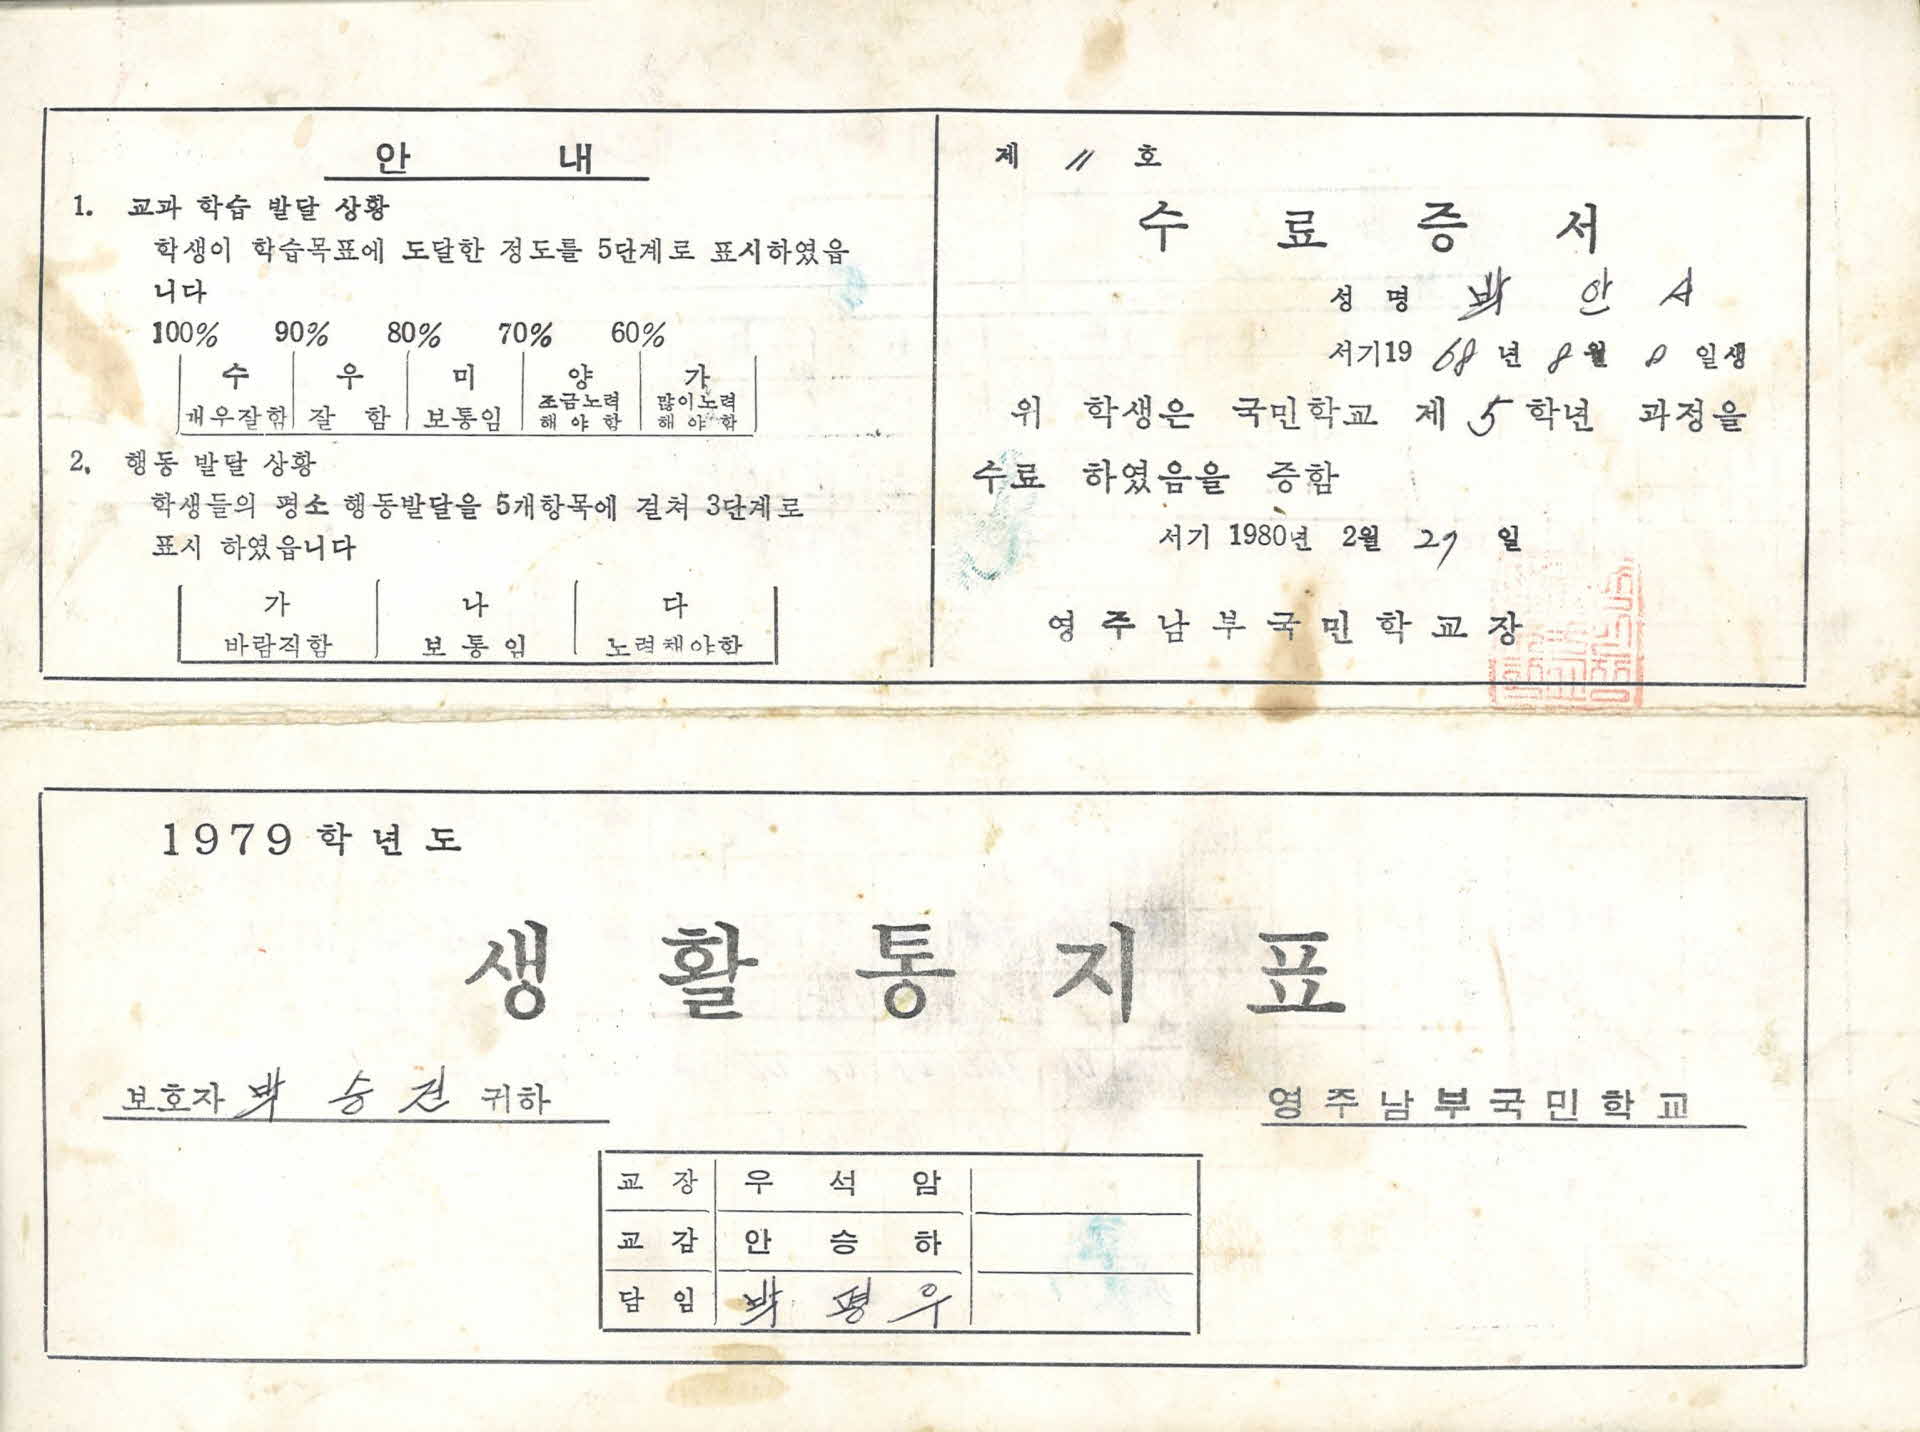 안 내
1. 교과 학습 발달 상황
학생이 학습목표에 도달한 정도를 5단계로 표시하였읍
니다
100% 90% 80% 70% 60%
수 우 미 양 가
매우잘함 잘 함 보통임 조금노력 해야함 많이노력 해야함
2. 행동 발달 상황
학생들의 평소 행동발달을 5개항목에 걸쳐 3단계로
표시 하였읍니다
가 나 다
바람직함 보통임 노력해야함
제 11 호
수 료 증 서
성 명 박 안 서
서기19 68 년 8 월 8 일생
위 학생은 국민학교 제 5 학년 과정을
수료 하였음을 증함
서기 1980년 2월 27 일
영주남부국민학교장
1979 학년도
생 활 통 지 표
보호자 박 승 건 귀하
영주남부국민학교
교 장 우 석 암
교 감 안 승 하
담 임 박 평 우